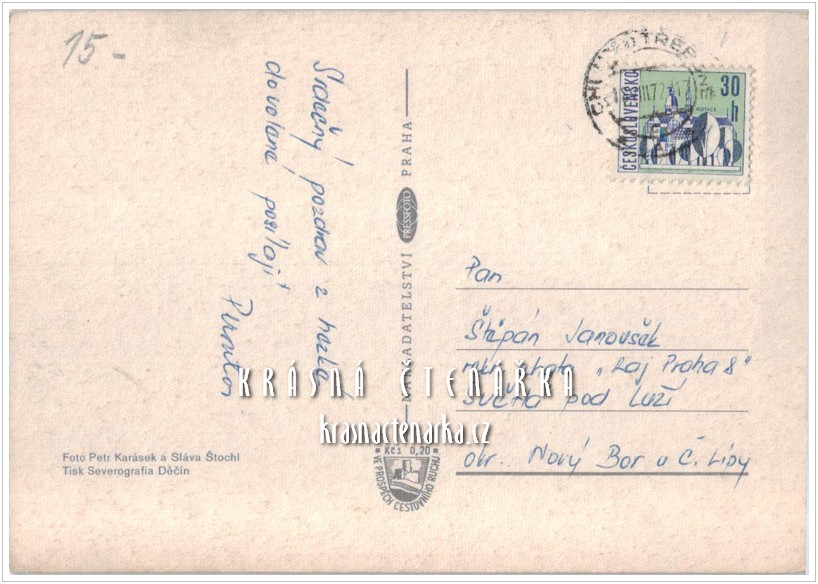 15-
Srdečný pozdrav z hezké
dovolené posílají
NAKLADATELSTVÍ PRESSFOTO PRAHA
ČESKOSLOVENSKO
30 h
KOŠICE
Pan
Štěpán Janoušek
chata "Ráj Praha 8"
Světlá pod Luží
okr. Nový Bor u Č. Lípy
KRÁSNÁ ČTENÁŘKA
krasnactenarka.cz
Kčs 0,20
VE PROSPĚCH CESTOVNÍHO RUCHU
Foto Petr Karásek a Sláva Štochl
Tisk Severografia Děčín